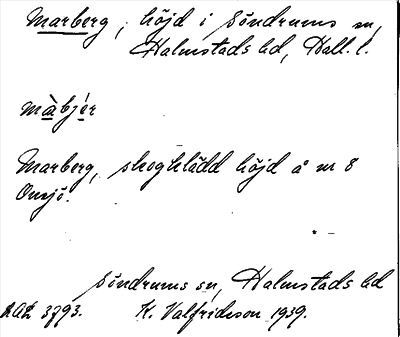 Marberg, höjd i Söndrums sn,
Halmstads hd, Hall. l.
màbjér
Marberg, skogklädd höjd å nr 8
Onsjö.
Söndrums sn, Halmstads hd
K. Valfridsson 1939.